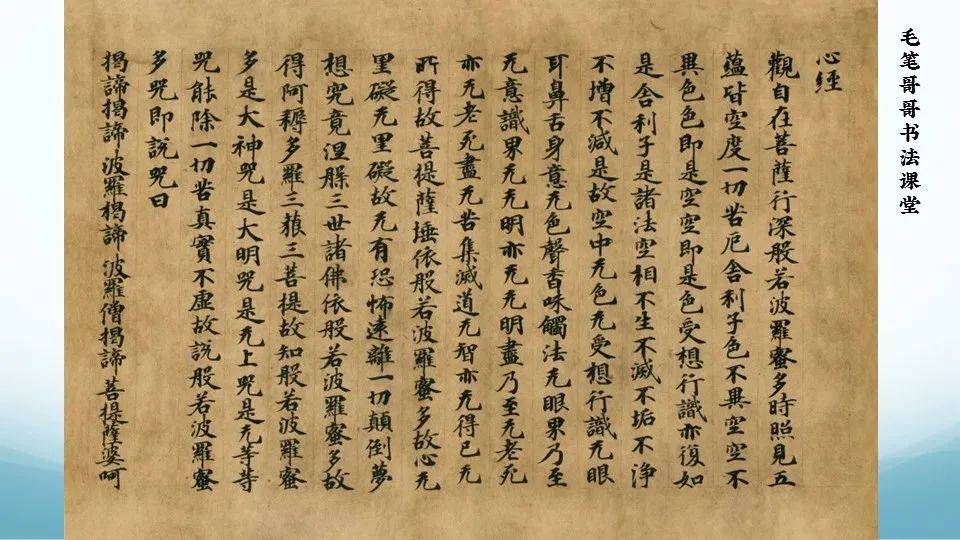 毛笔哥哥书法课堂
心經
觀自在菩薩行深般若波羅蜜多時照見五
蘊皆空度一切苦厄舍利子色不異空空不
異色色即是空空即是色受想行識亦復如
是舍利子是諸法空相不生不滅不垢不淨
不增不減是故空中无色无受想行識无眼
耳鼻舌身意无色聲香味觸法无眼界乃至
无意識界无无明亦无无明盡乃至无老死
亦无老死盡无苦集滅道无智亦无得已无
所得故菩提薩埵依般若波羅蜜多故心无
罣礙无罣礙故无有恐怖遠離一切顛倒夢
想究竟涅槃三世諸佛依般若波羅蜜多故
得阿耨多羅三藐三菩提故知般若波羅蜜
多是大神咒是大明咒是无上咒是无等等
咒能除一切苦真實不虛故說般若波羅蜜
多咒即說咒曰
揭諦揭諦 波羅揭諦 波羅僧揭諦 菩提薩婆呵